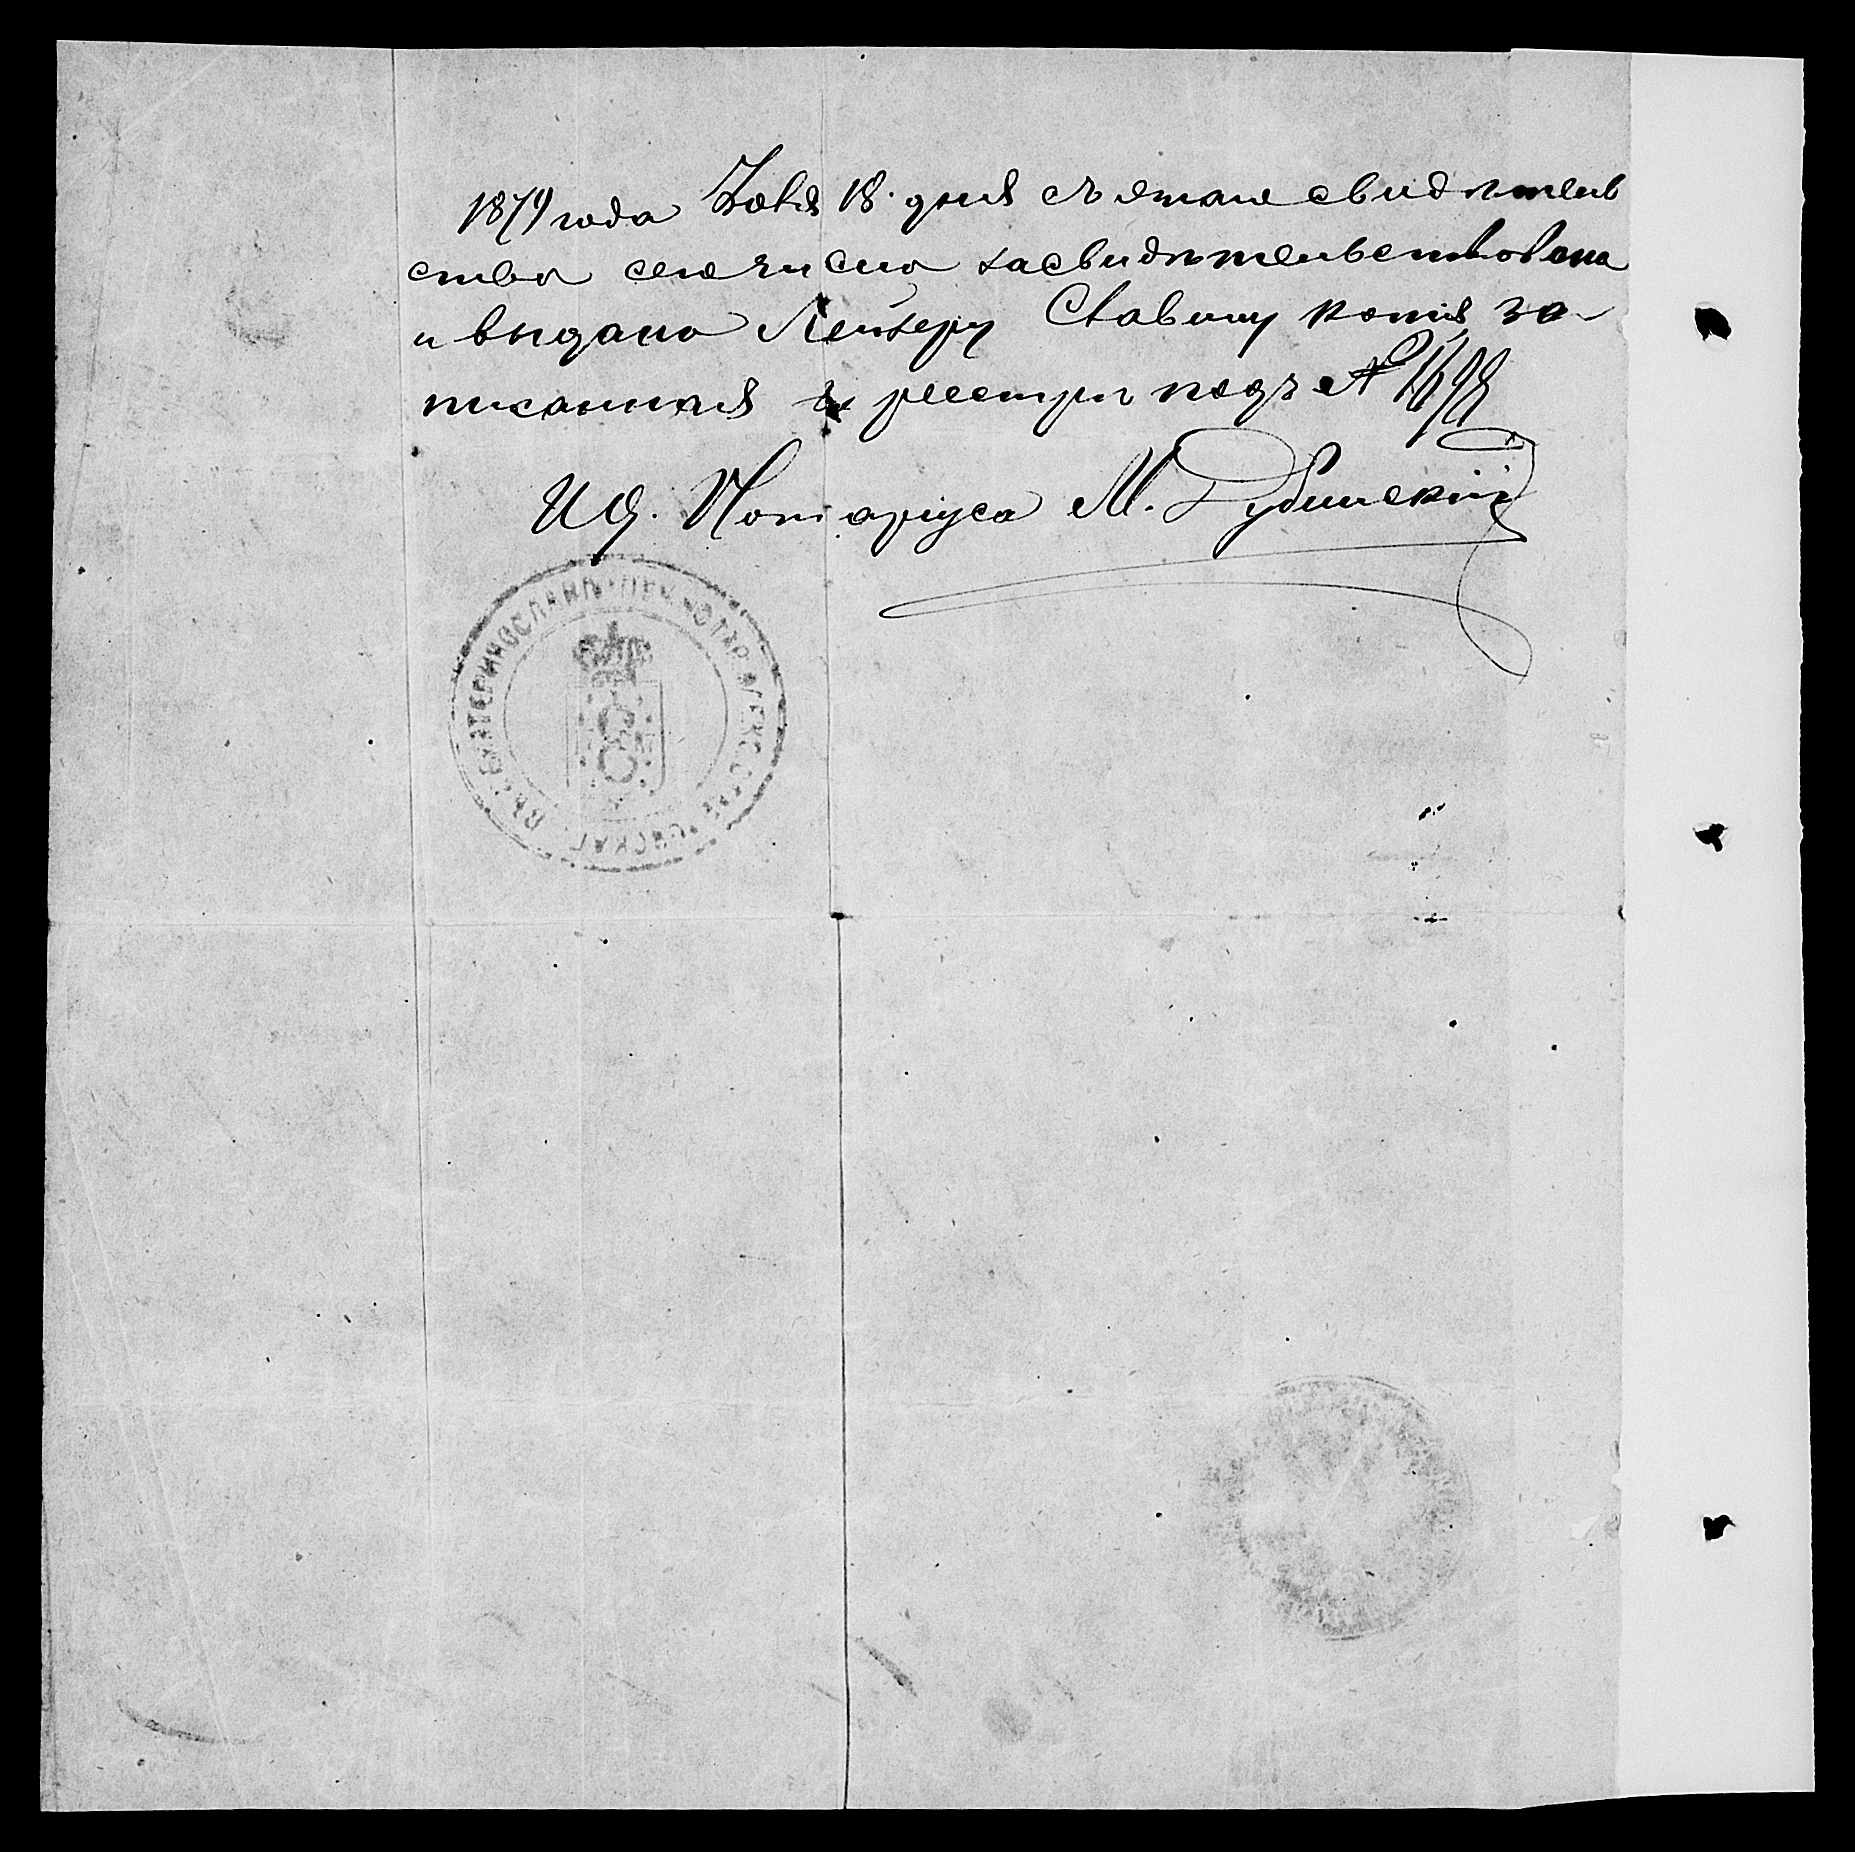 1879 года Іюля 18. дня съ этаго свидѣтель
ства сего числа засвидѣтельствована
и выдана Лейзеру Славину копія за
писанная въ реестръ подъ №
И. д. Нотаріуса М. Дубинскій
ЕКАТЕРИНОСЛАВЛ